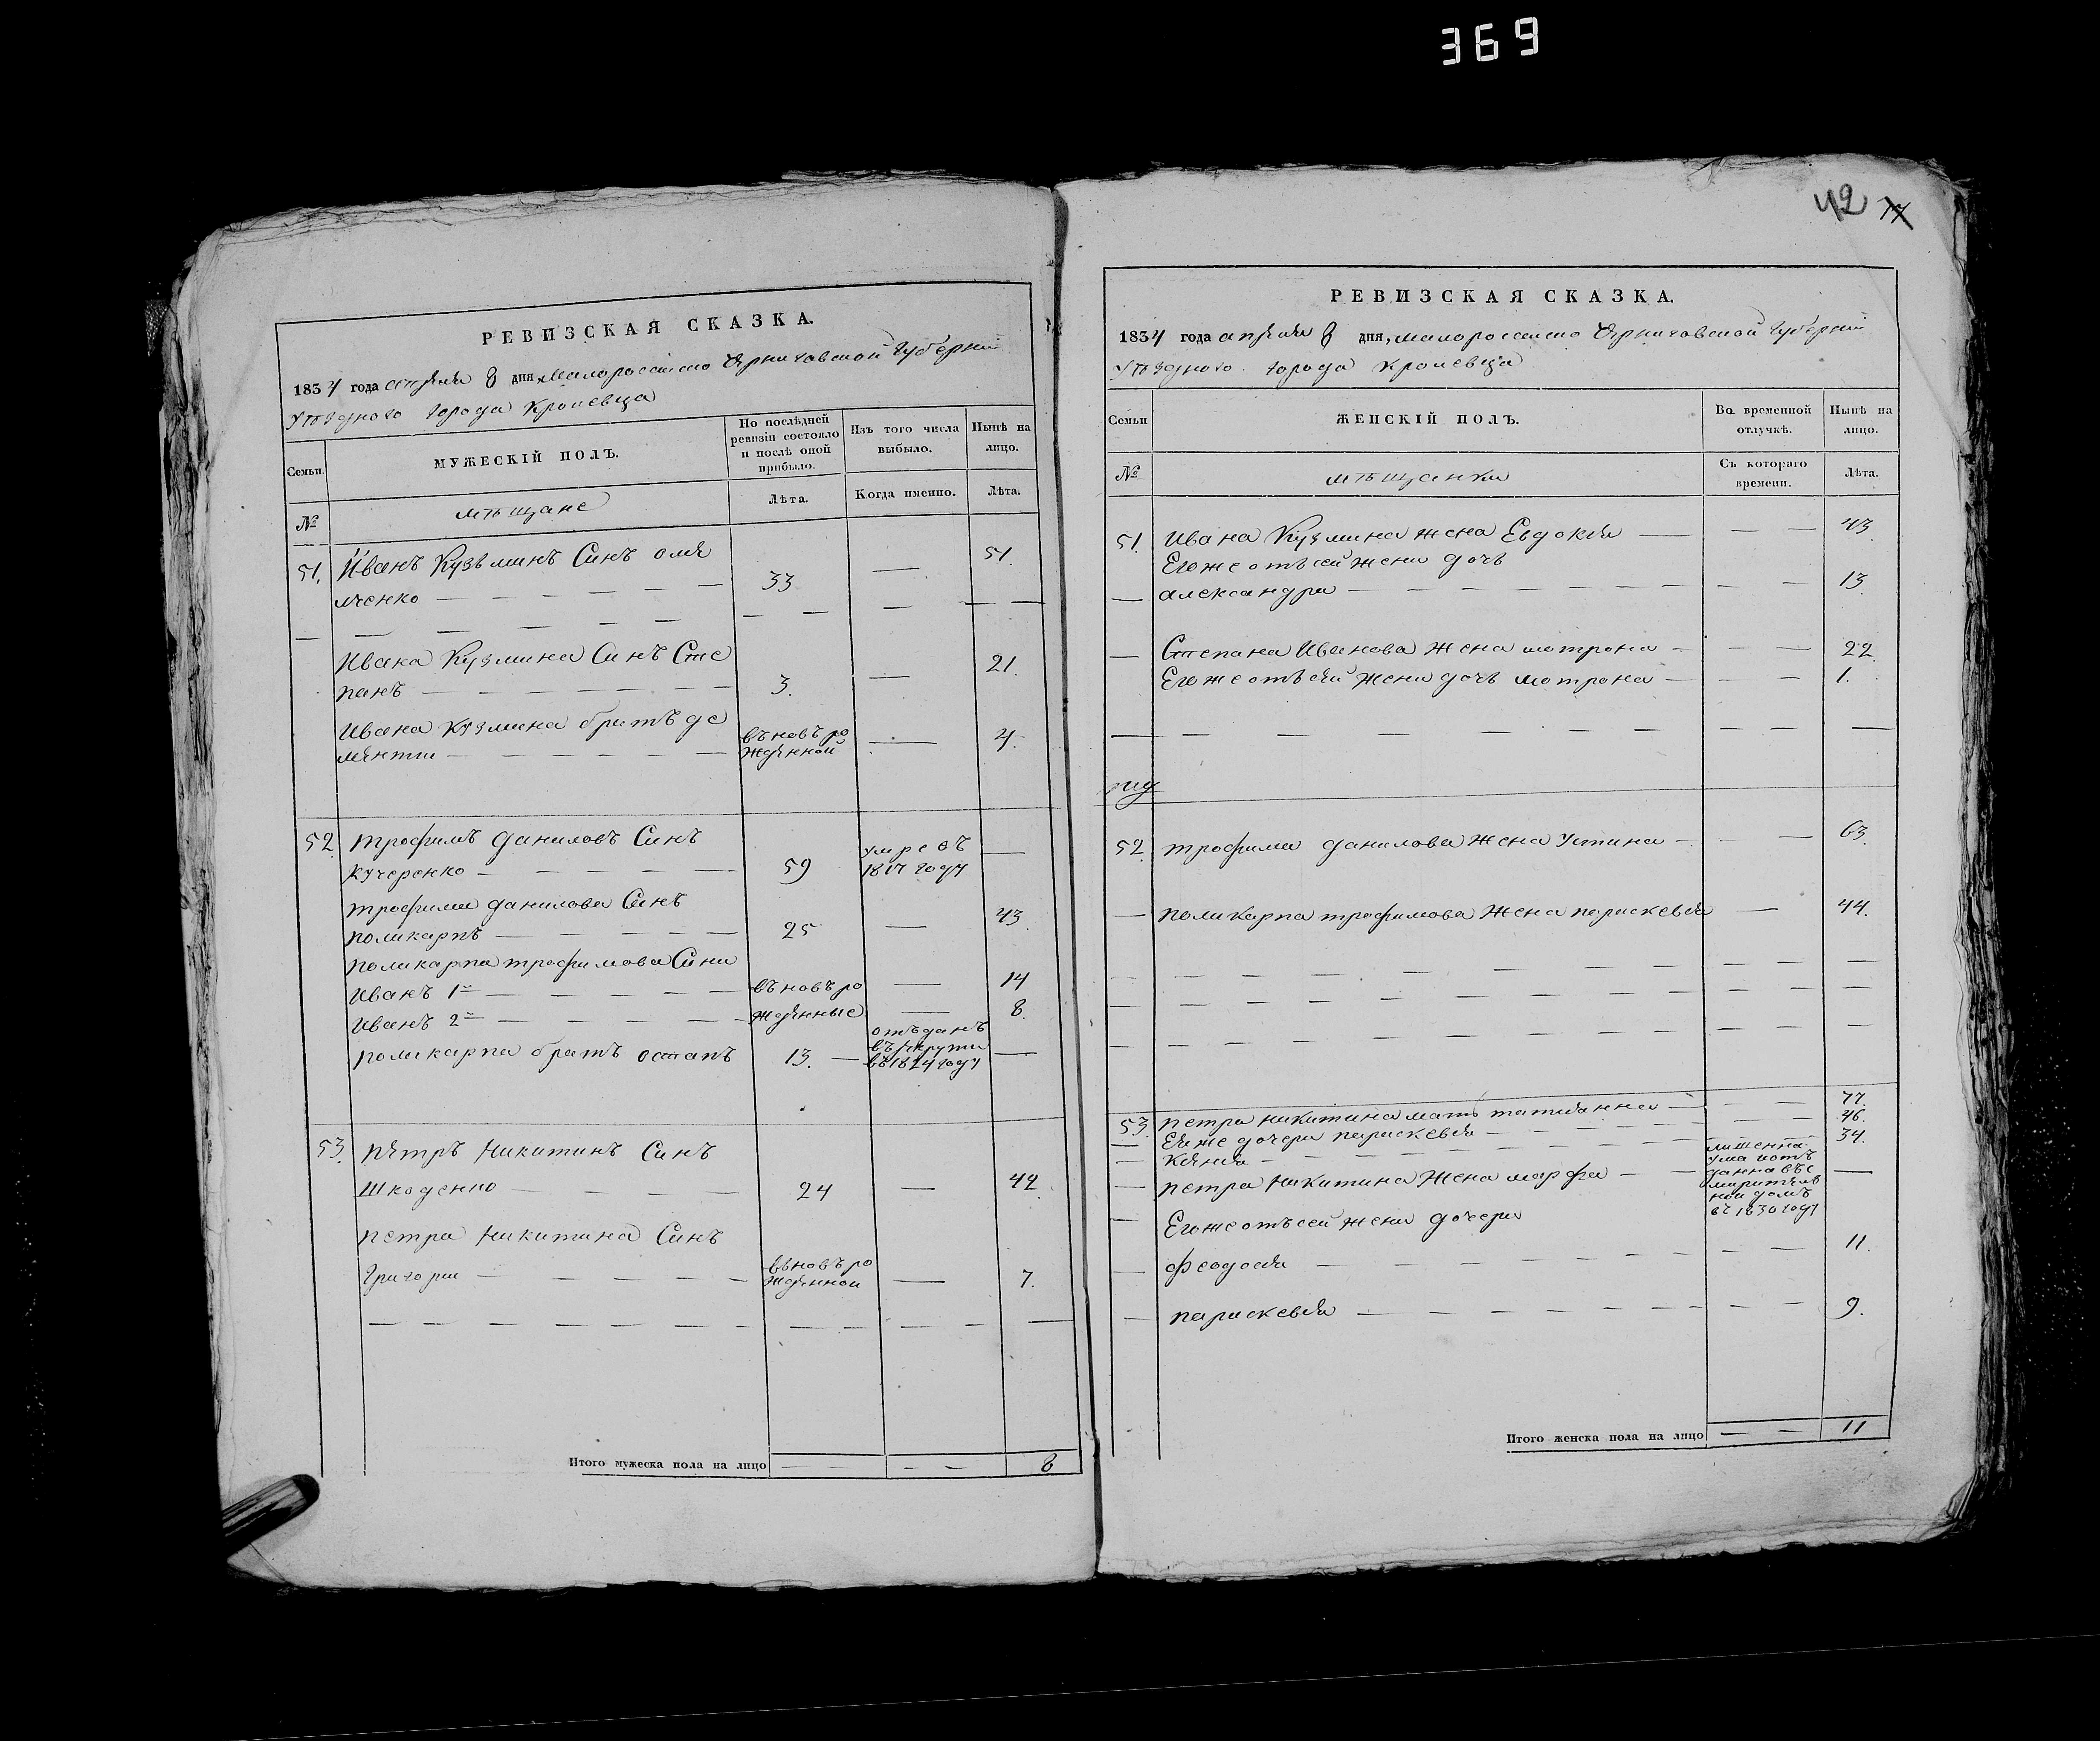 369
РЕВИЗСКАЯ СКАЗКА.
1834 года апреля 8 дня, малороссийско Черниговской губернии
Уѣздного города Кролевца
Семьи.
МУЖЕСКІЙ ПОЛЪ.
По послѣдней ревизіи состояло и послѣ оной прибыло.
Изъ того числа выбыло.
Нынѣ на лицо.
№
мѣщане
Лѣта.
Когда именно.
Лѣта.
51. Иванъ Кузьминъ Синъ омел
ченко — 33 — 51.
Ивана Кузмина Синъ Сте
панъ — 3. — 21.
Ивана Кузмина братъ де
ментии — въновъ ро
жденной — 4.
52. трофимъ даниловъ Синъ
кучеренко — 59 умре въ
1817 году —
трофима данилова Синъ
поликарпъ — 25 — 43.
поликарпа трофимова Сини
Иванъ 1й — въновъ ро — 14
Иванъ 2й — жденные — 8.
поликарпа братъ остапъ 13. — отъданъ
въ рекруты
въ 1824 году —
53. петръ никитинъ Синъ
Шкоденко — 24 — 42.
петра никитина Синъ
григории — въновъ ро
жденной — 7.
Итого мужеска пола на лицо — — 8
42 17
РЕВИЗСКАЯ СКАЗКА.
1834 года апреля 8 дня, малороссийско Черниговской губернии
Уѣздного города Кролевца
Семьи
ЖЕНСКІЙ ПОЛЪ.
Во временной отлучкѣ.
Нынѣ на лицо.
№
мѣщанки
Съ котораго времени.
Лѣта.
51. Ивана Кузмина жена Евдокия — 43.
Егоже отъ сей жени дочь
александра — 13
Степана Иванова жена мотрона — 22.
Егоже отъ сей жени дочь мотрона — 1.
52. трофима данилова жена Устина — 63.
поликарпа трофимова жена параскевия — 44.
53. петра никитина мать татианна — 77.
Еяже дочери параскевия — 46.
Ксения — 34.
петра никитина жена марфа — лишенна
ума и отъ
данна въ с
мирител
ной домъ
въ 1830 году —
Егоже отъ сей жени дочери
феодосия — 11.
параскевия — 9.
Итого женска пола на лицо — — 11